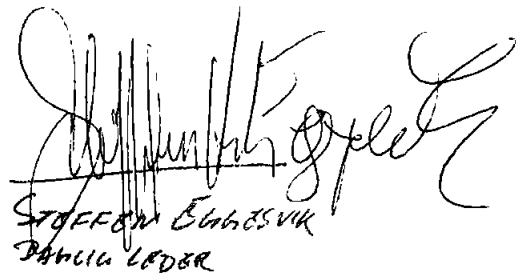 STEFFEN EGGESVIK
DAGLIG LEDER